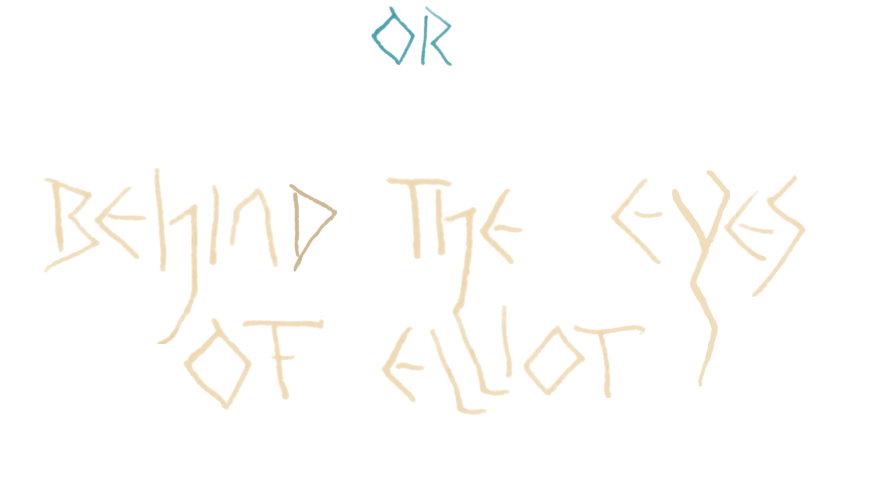 OR
BEhIND ThE EYES
OF ELLIOT